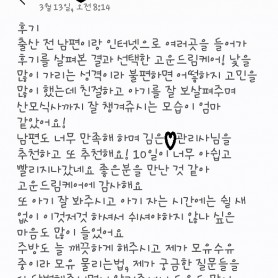 3월 13일, 오전 8:14
후기
출산 전 남편이랑 인터넷으로 여러곳을 들어가
후기를 살펴본 결과 선택한 고운드림케어! 낯을
많이 가리는 성격이라 불편하면 어떻하지 고민을
많이 했는데 친절하고 아기를 잘 보살펴주며
산모식사까지 잘 챙겨쥬시는 모습이 엄마
같았어요!
남편도 너무 만족해 하며 김은♥관리사님을
추천하고 또 추천해요! 10일이 너무 아쉽고
빨리지나갔네요 좋은분을 만난 것 같아
고운드림케어에 감사해요
또 아기 잘 봐주시고 아기 자는 시간에는 쉴 새
없이 이것저것 하셔서 쉬셔야하지 않나 싶은
마음도 많이 들었어요
주방도 늘 깨끗하게 해주시고 제가 모유수유
중이라 모유 물리는법, 제가 궁금한 질문들을